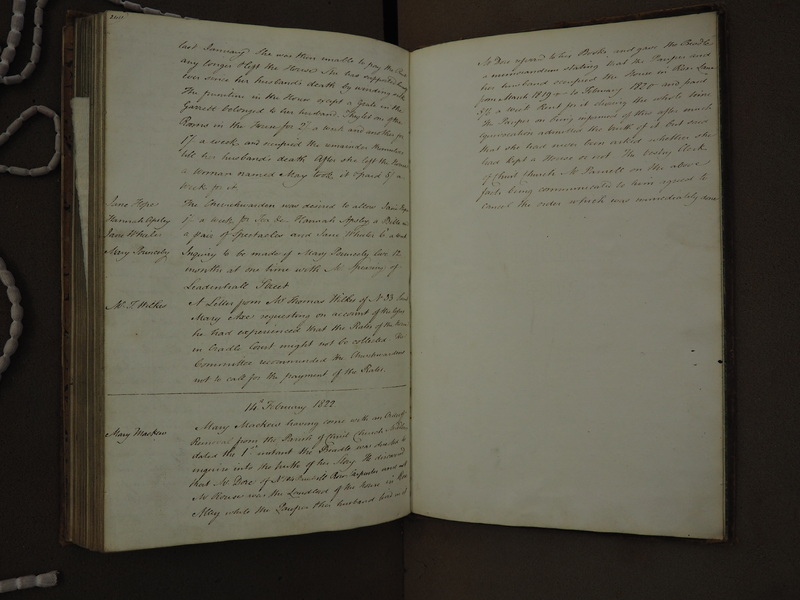 last January She was then unable to pay the Rent
any longer & left the House She has supported herself
ever since her husband's death by
The furniture in the House except a few in the
Garrett belonged to her husband They let one of the
Rooms in the House for 2/ a week and another for
1/ a week, and occupied the remainder themselves
till her husband's death After she left the House
a Woman named May took it & paid 5/ a
week for it
Jane
The Churchwarden was desired to allow Jane
Hannah Apsley
1/ a week for Hannah Apsley a
Jane Wheeler
a pair of Spectacles and Jane Wheeler a week
Mary
Inquiry to be made of Mary live 12
months at one time with Mr of
Leadenhall Street
Mr. T. Wilkes
A Letter from Mr Thomas Wilkes of No 23 Saint
Mary Axe requesting on account of the
he had experienced that the Rates of the House
in Cradle Court might not be collected The
Committee recommended the Churchwardens
not to call for the payment of the Rates.
14th February 1822
Mary Mackew
Mary Mackew having come with an Order of
Removal from the Parish of Christ Church
dated the 1st instant the Beadle was desired to
inquire into the truth of her Story He discovered
that Mr Dore of Row Carpenter and not
Mr was the Landlord of the House in
Alley while the Pauper & her husband lived in it
Mr Dore referred to his Books and gave the Beadle
a memorandum stating that the Pauper and
her husband occupied the House in
from March 1819 to February 1820 and paid
5/6 a week Rent for it during the whole time
The Pauper on being informed of this after much
equivocation admitted the truth of it but said
that she had never been asked whether she
had kept a House or not The Vestry Clerk
of Christ Church Mr Parnell on the above
facts being communicated to him agreed to
cancel the order which was immediately done